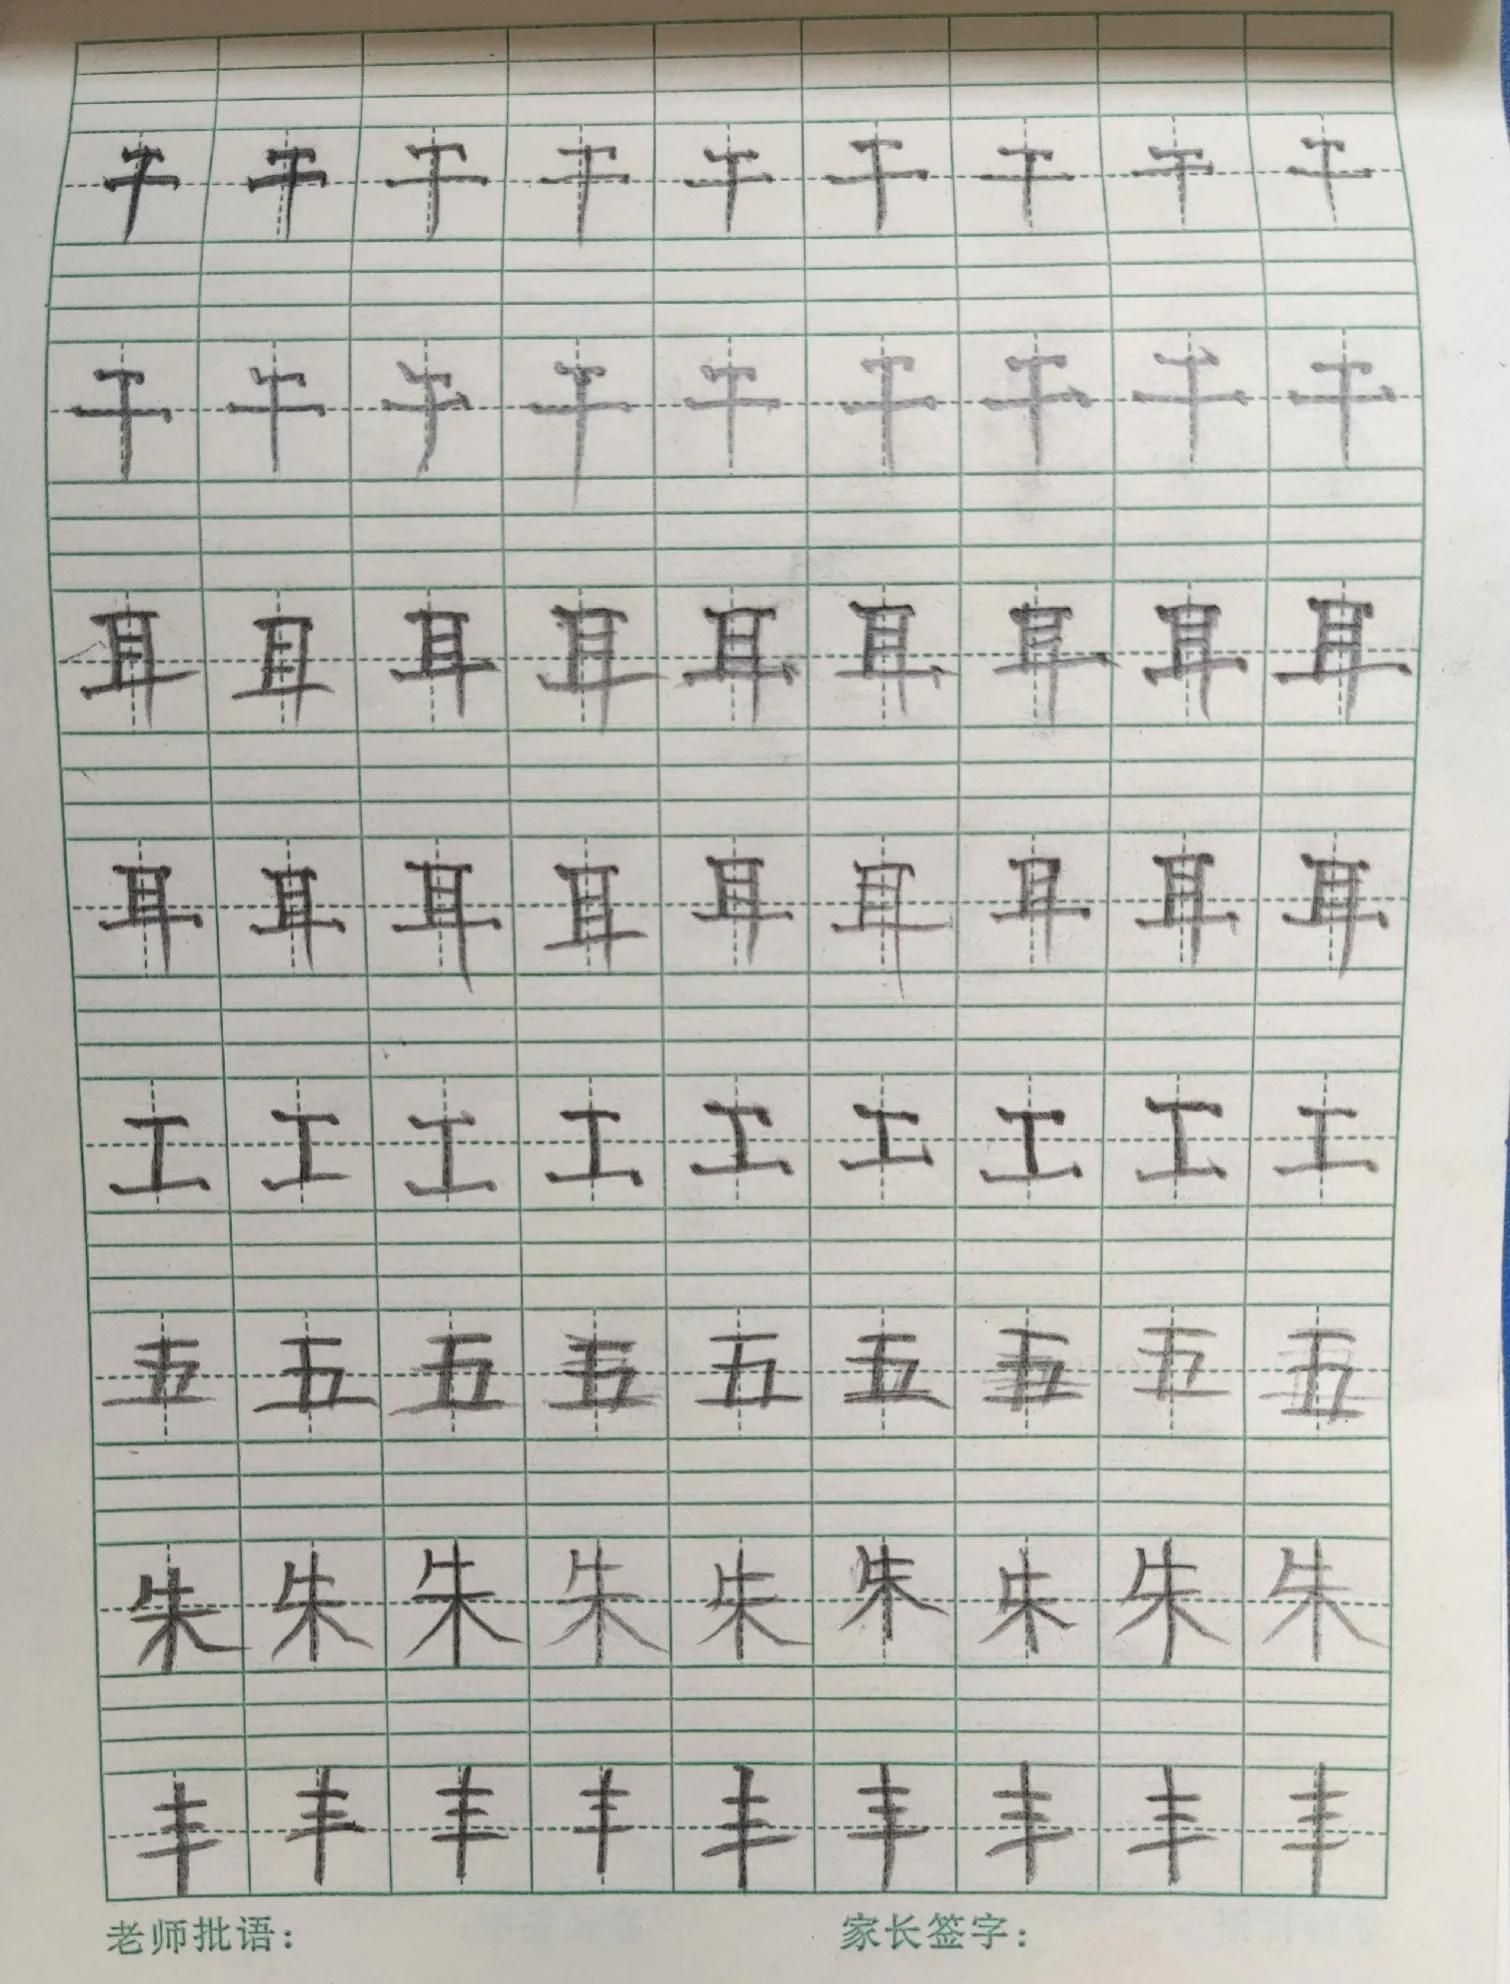 干干干干干干干干干
干干干干干干干干干
耳耳耳耳耳耳耳耳耳
耳耳耳耳耳耳耳耳耳
工工工工工工工工工
五五五五五五五五五
朱朱朱朱朱朱朱朱朱
丰丰丰丰丰丰丰丰丰
老师批语： 家长签字：